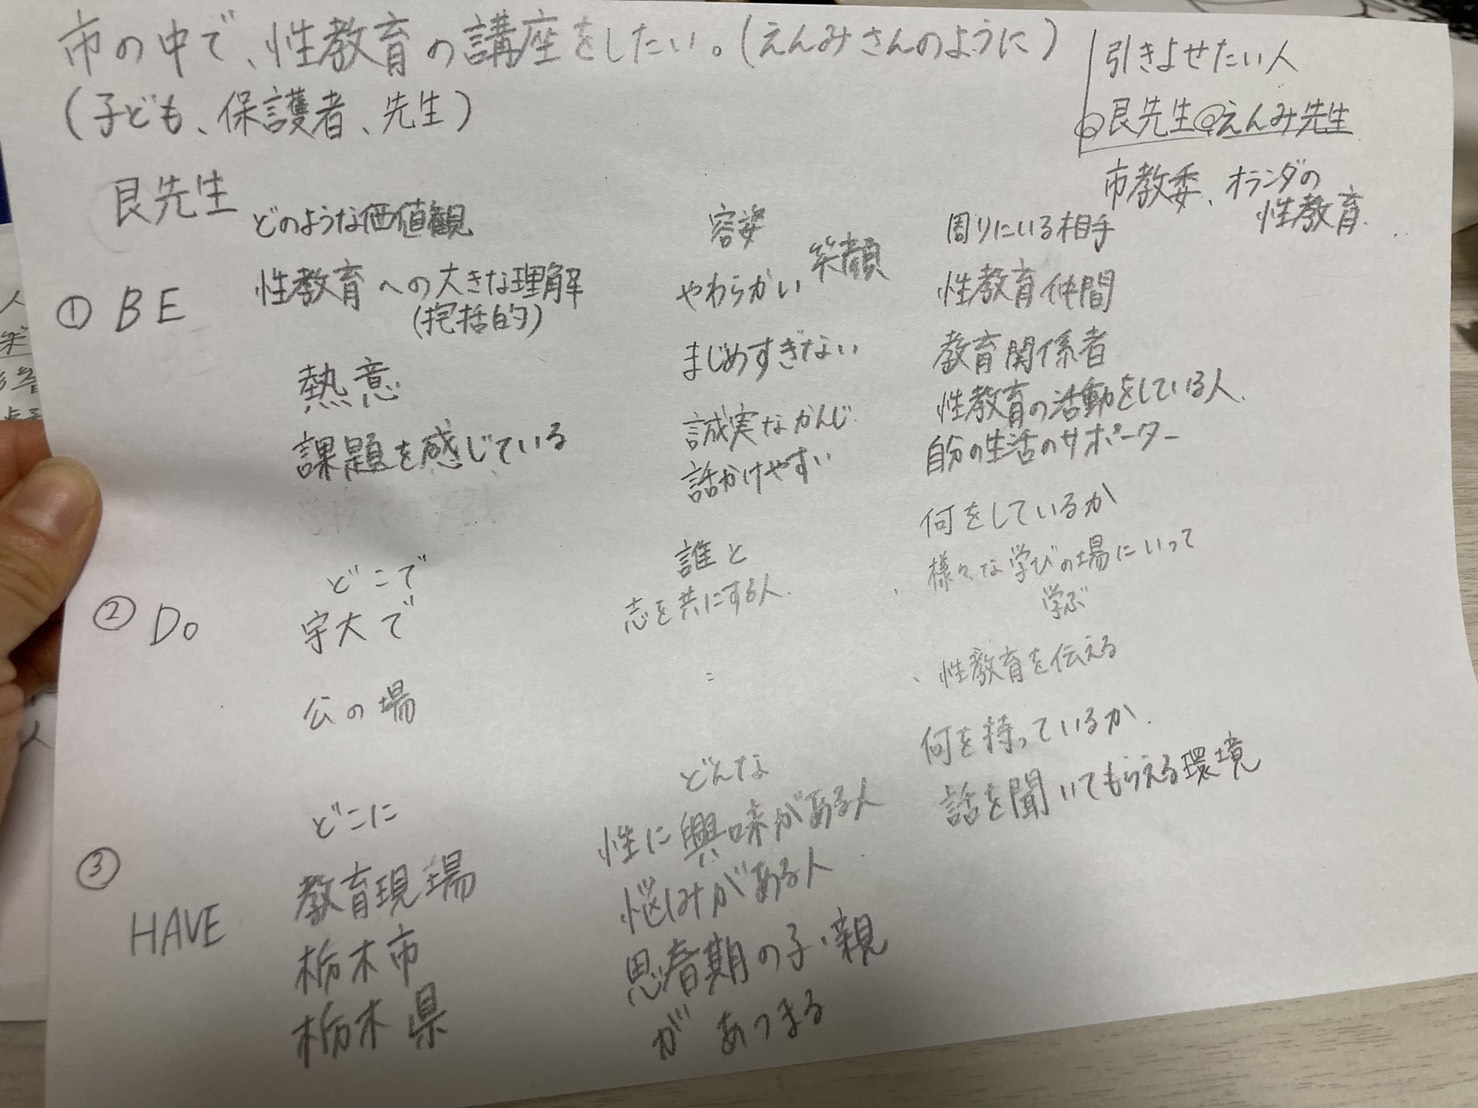 市の中で、性教育の講座をしたい。(えんみさんのように)
(子ども、保護者、先生)
引きよせたい人
◎艮先生◎えんみ先生
市教委、オランダの
性教育.
艮先生
どのような価値観
容姿
周りにいる相手
① BE
性教育への大きな理解
(抱括的)
熱意
課題を感じている
やわらかい 笑顔
まじめすぎない
誠実なかんじ.
話かけやすい
性教育仲間
教育関係者
性教育の活動をしている人.
自分の生活のサポーター
② Do
どこで
宇大で
公の場
誰と
志を共にする人.
何をしているか
、様々な学びの場にいって
学ぶ
、性教育を伝える
③ HAVE
どこに
教育現場
栃木市
栃木県
どんな
性に興味がある人
悩みがある人
思春期の子・親
があつまる
何を持っているか.
話を聞いてもらえる環境